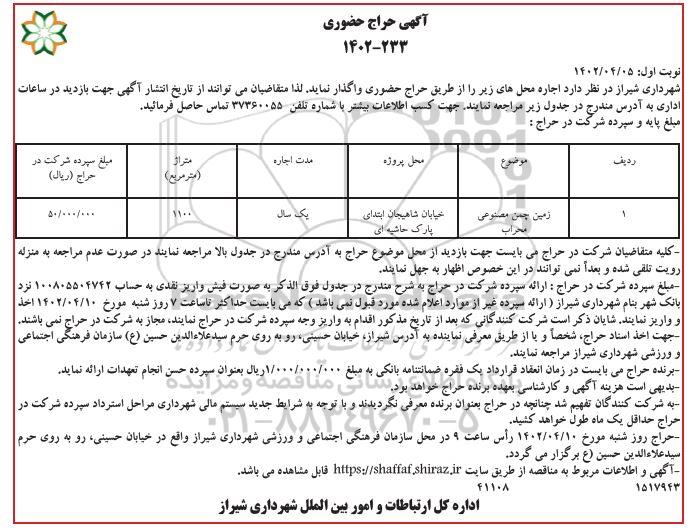 آگهی حراج حضوری
۱۴۰۲-۲۳۳
نوبت اول: ۱۴۰۲/۰۴/۰۵
شهرداری شیراز در نظر دارد اجاره محل های زیر را از طریق حراج حضوری واگذار نماید. لذا متقاضیان می توانند از تاریخ انتشار آگهی جهت بازدید در ساعات
اداری به آدرس مندرج در جدول زیر مراجعه نمایند. جهت کسب اطلاعات بیشتر با شماره تلفن ۳۷۳۶۰۰۵۵ تماس حاصل فرمائید.
مبلغ پایه و سپرده شرکت در حراج :
ردیف موضوع محل پروژه مدت اجاره متراژ (مترمربع) مبلغ سپرده شرکت در حراج (ریال)
۱ زمین چمن مصنوعی محراب خیابان شاهیجان ابتدای پارک حاشیه ای یک سال ۱۱۰۰ ۵۰/۰۰۰/۰۰۰
-کلیه متقاضیان شرکت در حراج می بایست جهت بازدید از محل موضوع حراج به آدرس مندرج در جدول بالا مراجعه نمایند در صورت عدم مراجعه به منزله
رویت تلقی شده و بعداً نمی توانند در این خصوص اظهار به جهل نمایند.
-مبلغ سپرده شرکت در حراج : ارائه سپرده شرکت در حراج به شرح مندرج در جدول فوق الذکر به صورت فیش واریز نقدی به حساب ۱۰۰۸۰۵۵۰۴۷۴۲ نزد
بانک شهر بنام شهرداری شیراز ( ارائه سپرده غیر از موارد اعلام شده مورد قبول نمی باشد ) که می بایست حداکثر تاساعت ۷ روز شنبه مورخ ۱۴۰۲/۰۴/۱۰ اخذ
و واریز نمایند. شایان ذکر است شرکت کنندگانی که بعد از تاریخ مذکور اقدام به واریز وجه سپرده شرکت در حراج نمایند، مجاز به شرکت در حراج نمی باشند.
-جهت اخذ اسناد حراج، شخصاً و یا از طریق معرفی نماینده به آدرس شیراز، خیابان حسینی، رو به روی حرم سیدعلاءالدین حسین (ع) سازمان فرهنگی اجتماعی
و ورزشی شهرداری شیراز مراجعه نمایند.
-برنده حراج می بایست در زمان انعقاد قرارداد یک فقره ضمانتنامه بانکی به مبلغ ۱/۰۰۰/۰۰۰/۰۰۰ریال بعنوان سپرده حسن انجام تعهدات ارائه نماید.
-بدیهی است هزینه آگهی و کارشناسی بعهده برنده حراج خواهد بود.
-به شرکت کنندگان تفهیم شد چنانچه در حراج بعنوان برنده معرفی نگردیدند و با توجه به شرایط جدید سیستم مالی شهرداری مراحل استرداد سپرده شرکت در
حراج حداقل یک ماه طول خواهد کشید.
-حراج روز شنبه مورخ ۱۴۰۲/۰۴/۱۰ رأس ساعت ۹ در محل سازمان فرهنگی اجتماعی و ورزشی شهرداری شیراز واقع در خیابان حسینی، رو به روی حرم
سیدعلاءالدین حسین (ع) برگزار می گردد.
-آگهی و اطلاعات مربوط به مناقصه از طریق سایت https://shaffaf.shiraz.ir قابل مشاهده می باشد.
۱۵۱۷۹۴۳ ۴۱۱۰۸
اداره کل ارتباطات و امور بین الملل شهرداری شیراز
۰۲۱-۸۸۳۴۹۶۷۰-۵